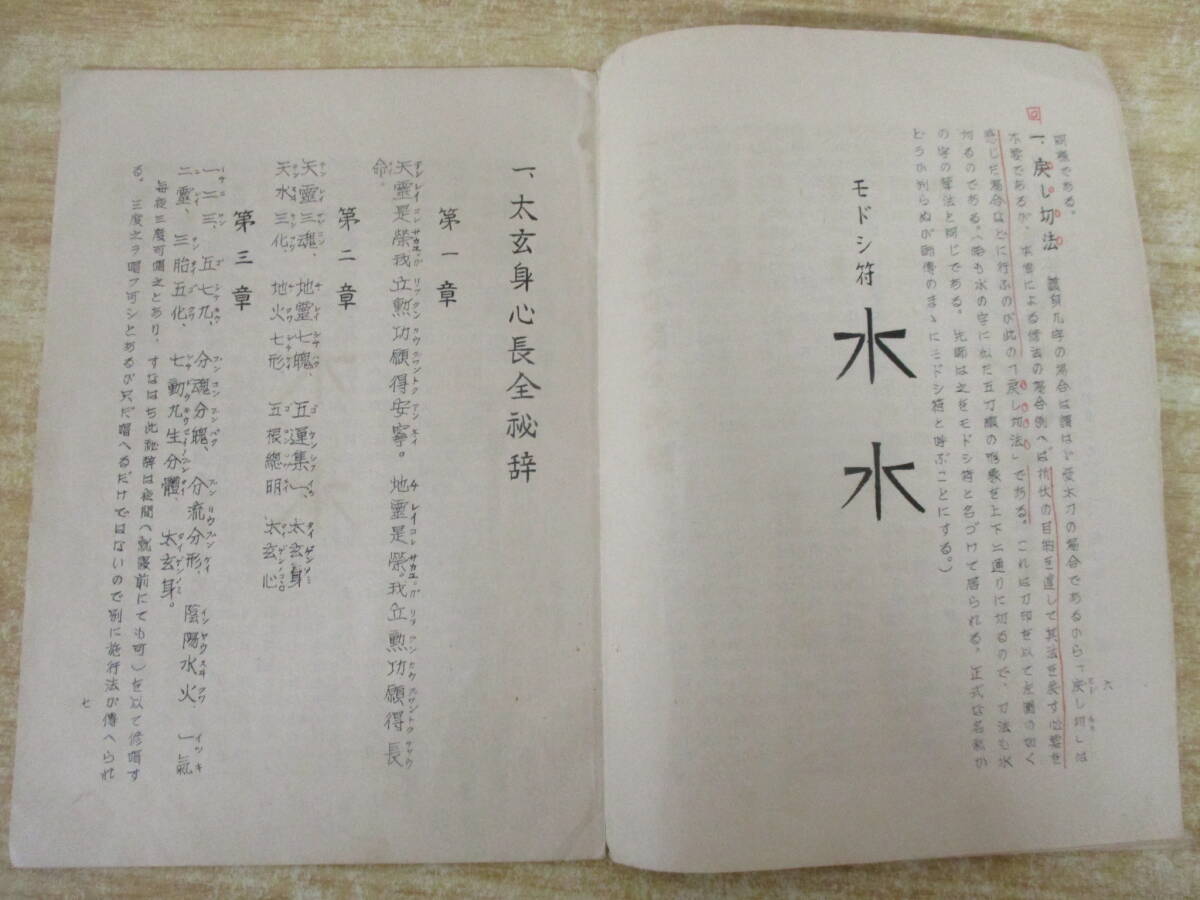 同様である。
一、戻し切法　護身九字の場合は謂はゞ受太刀の場合であるから「戻し切」は
不要であるが、本書による修法の場合例へば目的を達して其法を戻す必要を
感じた場合などに行ふのが此の「戻し切法」である。これは刀印を以て左圖の如く
切るのである。水の字に似た五刀線の形象を上下二通りに切るので、刀法も水
の字の筆法と同じである。先師は之をモドシ符と名づけて居られる。正式な名称か
どうか判らぬが師傳のまゝにモドシ符と呼ぶことにする。）
モドシ符
水
水
六
一、太玄身心長全祕辞
第一章
天靈是榮我立勲功願得安寧。地靈是榮。我立勲功願得長
命。
第二章
天靈三魂、地靈七魄、五運集一、太玄身
天水三化、地火七形、五根總明、太玄心
第三章
一二三、五七九、分魂分魄、分流分形、陰陽水火、一氣
二靈、三胎五化、七動九生分體、太玄身。
毎夜三度可唱之とあり、すなはち此祕辞は夜間へ就寝前にても可）を以て修唱す
る。三度之ヲ唱フ可シとあるが只だ唱へるだけではないので別に施行法が傳へられ
七